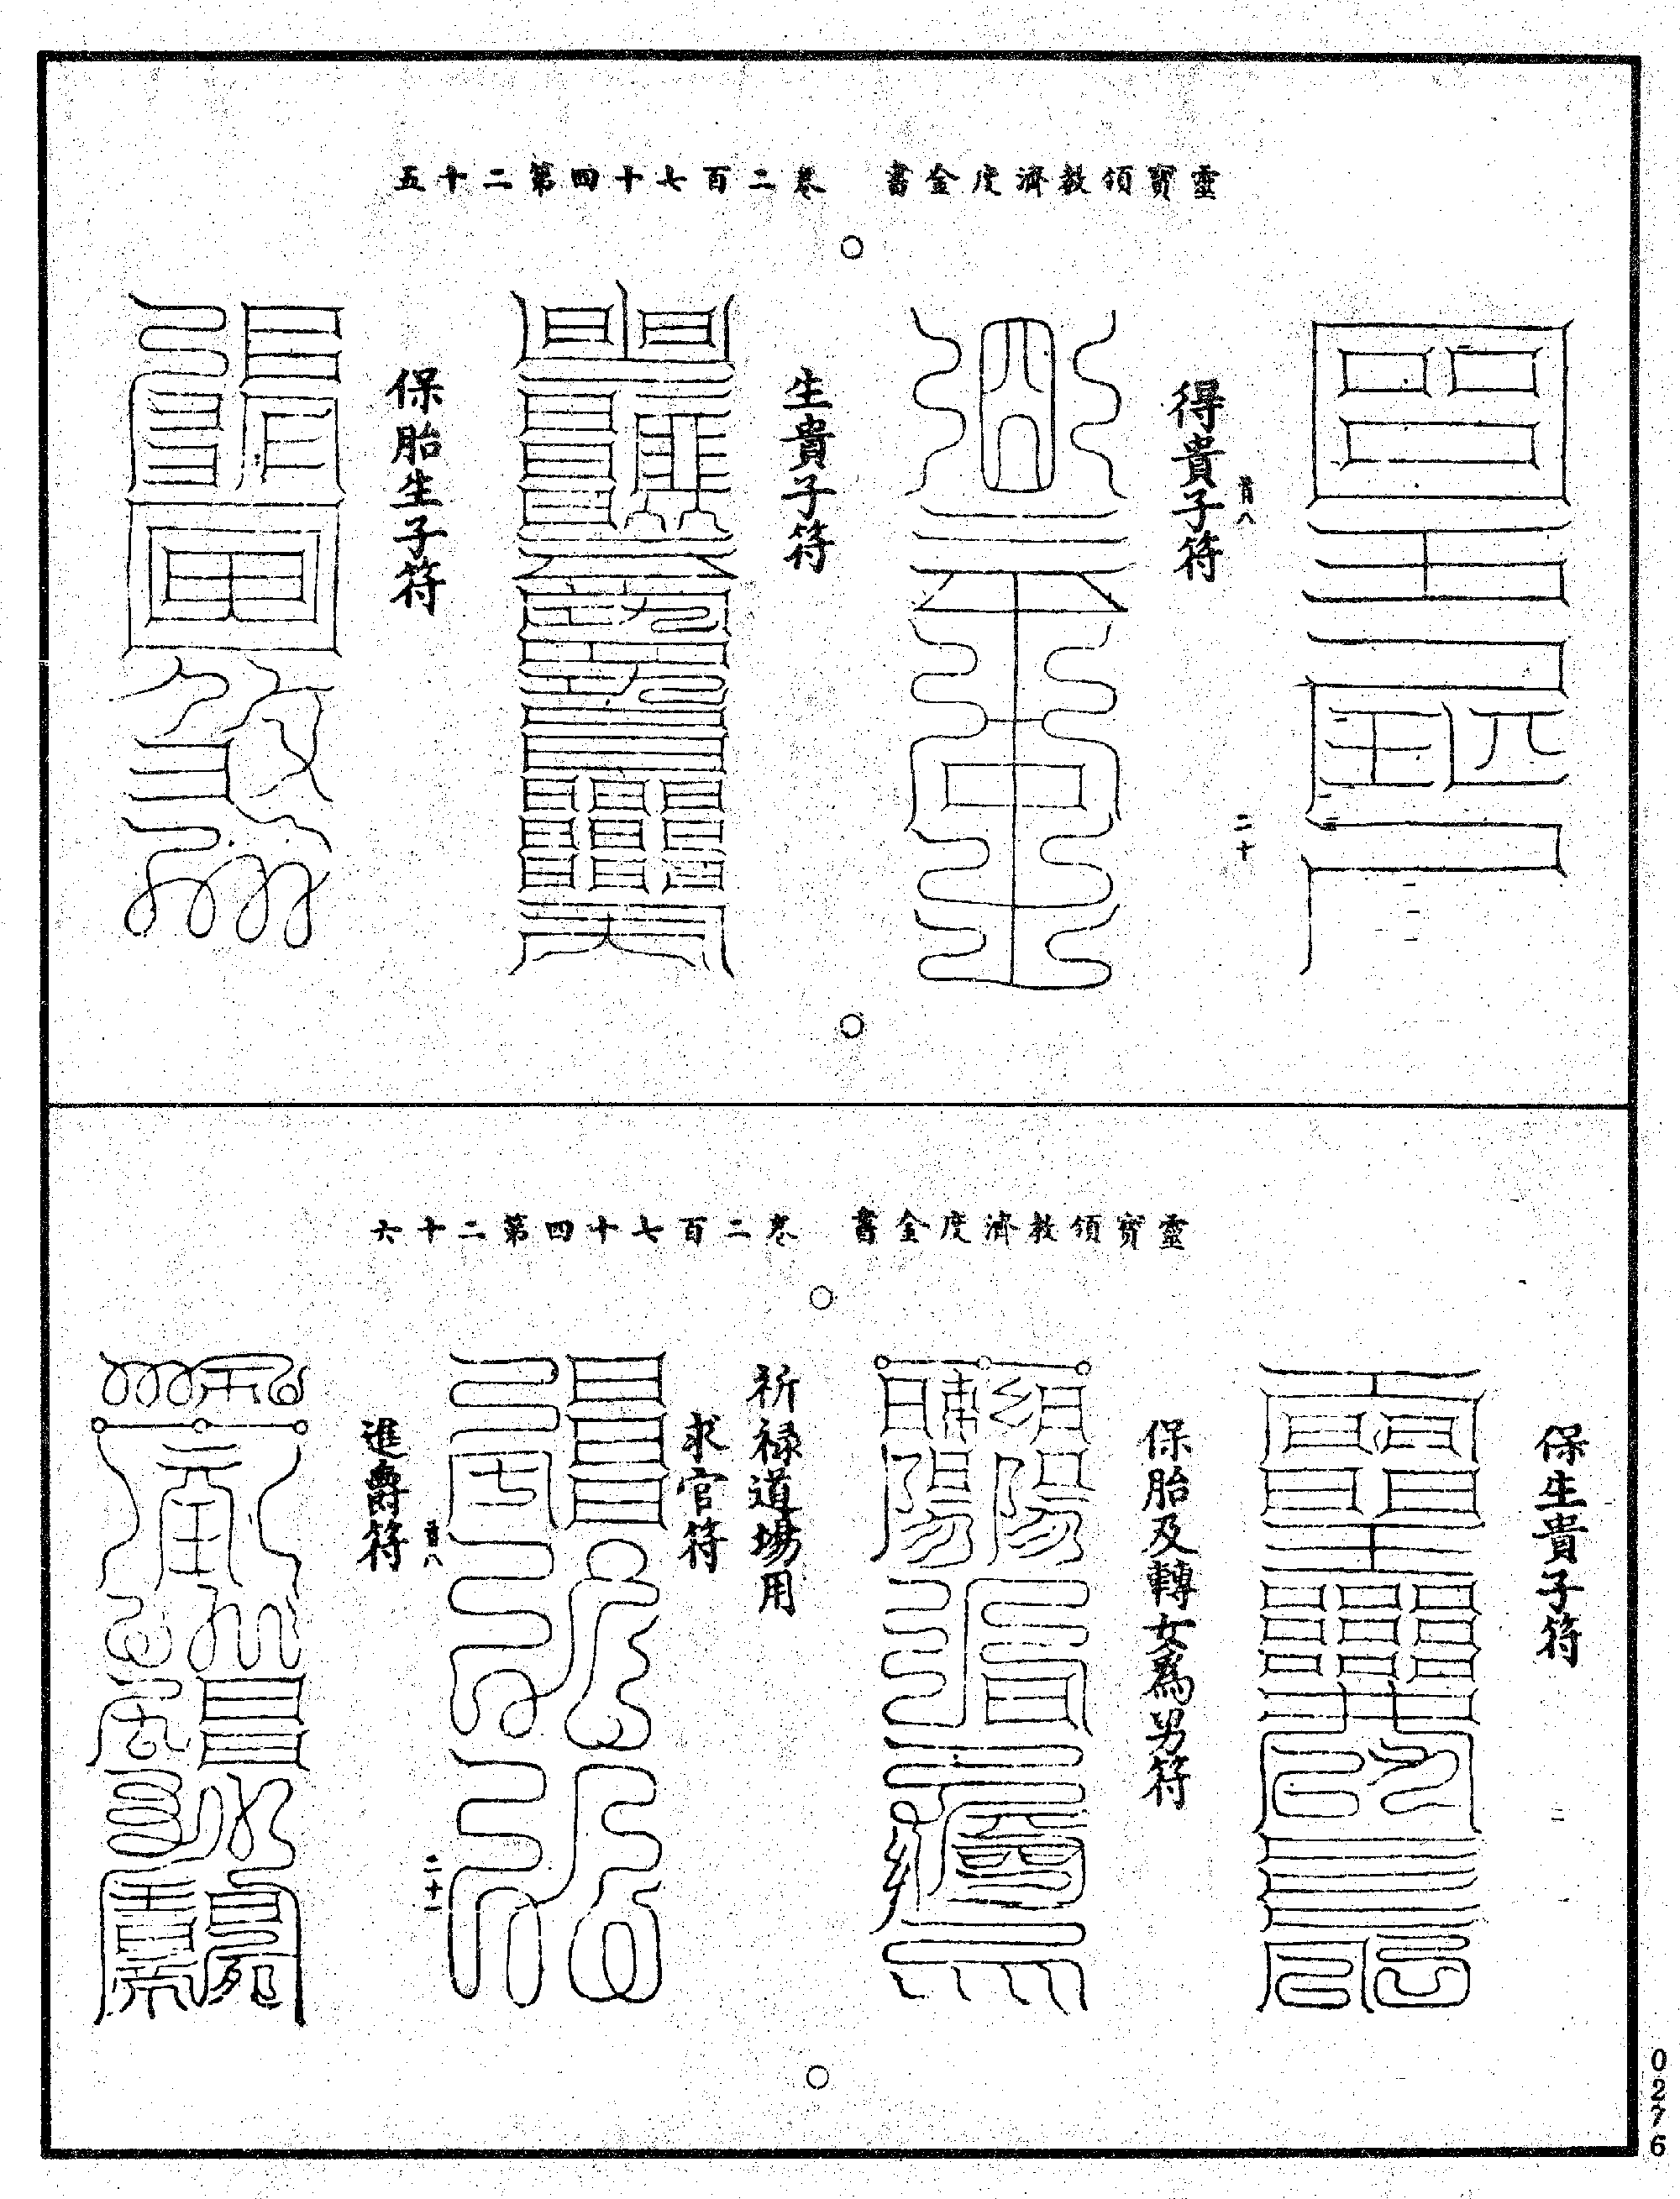 靈寶領教濟度金書 卷二百七十四第二十五
得貴子符
二十
生貴子符
保胎生子符
靈寶領教濟度金書 卷二百七十四第二十六
保生貴子符
保胎及轉女爲男符
祈祿道場用
求官符
二十一
進爵符
0276